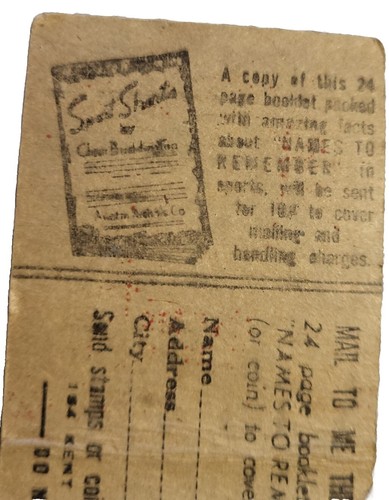 Sport Shorts
BY
A copy of this 24
page booklet packed
with amazing facts
about "NAMES TO
REMEMBER" in
sports, will be sent
for 10¢ to cover
mailing and
handling charges.
MAIL TO ME TH
24 page bookle
"NAMES TO REM
(or coin) to cove
Name
Address
City
Send stamps or coi
184 KENT